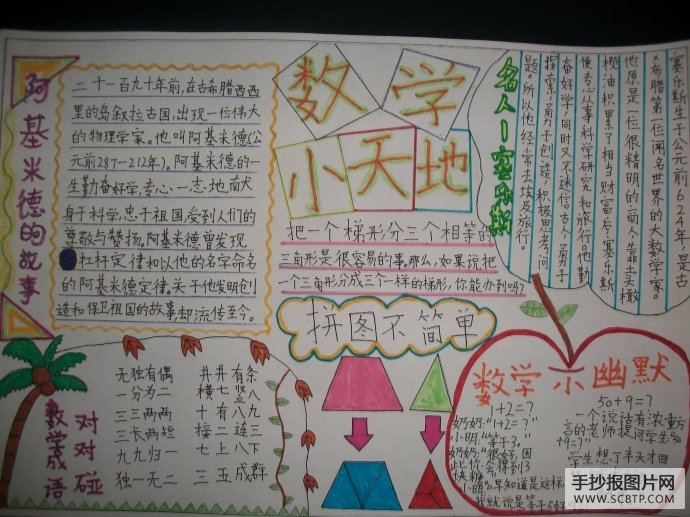 数学
小天地
阿基米德的故事
二十一百九十年前,在古希腊西西
里的岛叙拉古国,出现一位伟大
的物理学家。他叫阿基米德(公
元前287-212年)。阿基米德的一
生勤奋好学,专心一志,地献
身于科学,忠于祖国,受到人们的
尊敬与赞扬。阿基米德曾发现
杠杆定律和以他的名字命名
的阿基米德定律。关于他发明创
造和保卫祖国的故事却流传至今。
名人—塞乐斯
塞乐斯生于公元前624年,是古
希腊第一位闻名世界的大数学家。
他原是一位很精明的商人,靠卖橄
榄油积累了相当财富后,塞乐斯
便专心从事科学研究和旅行。他勤
奋好学,同时又不迷信古人,勇于
探索,勇于创造,积极思考问
题。所以他经常去埃及旅行。
把一个梯形分三个相等的
三角形是很容易的事,那么,如果说把
一个三角形分成三个一样的梯形,你能办到吗?
拼图不简单
数学成语
对对碰
无独有偶 井井有条
一分为二 横七竖八
三三两两 十有八九
三长两短 接二连三
九九归一 七上八下
独一无二 三五成群
数学小幽默
1+2=?
奶奶:"1+2=?"
小明:"等于3。"
奶奶:"很好,因
此你会得到3
块糖。"
小明:"早知道是这样,
我就说是等于5好
50+9=?
一个说话有浓重方
言的老师提问学生:"5
+9=?"
学生想了半天才回
手抄报图片网
WWW.SCBTP.COM